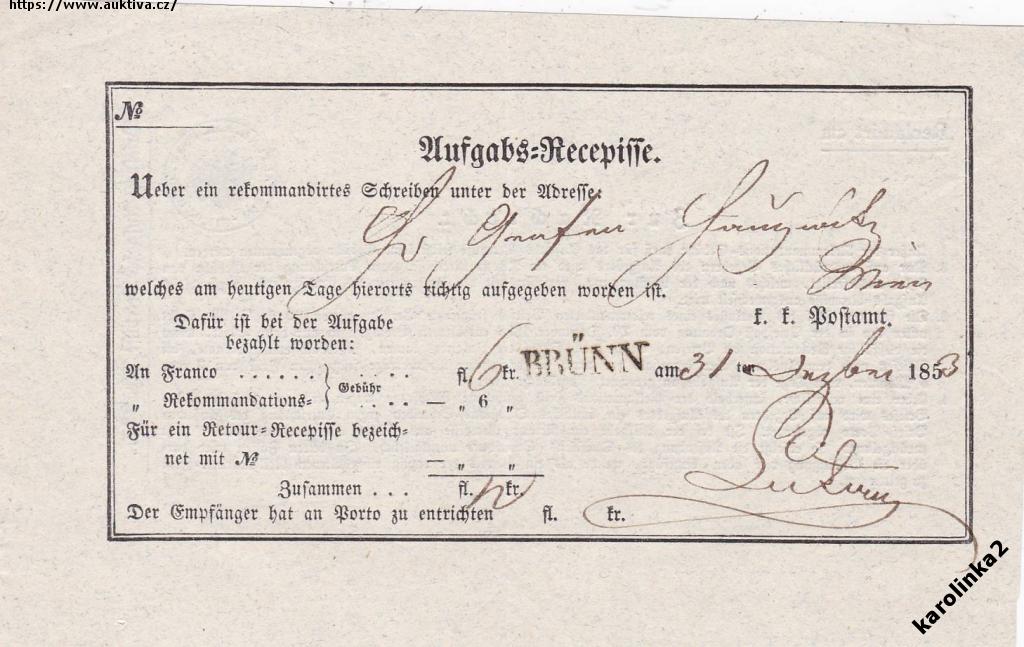 https://www.auktiva.cz/
No
Aufgabs=Recepisse.
Ueber ein rekommandirtes Schreiben unter der Adresse:
Grafen Haugwitz
Wien
welches am heutigen Tage hierorts richtig aufgegeben worden ist.
Dafür ist bei der Aufgabe
bezahlt worden:
k. k. Postamt.
An Franco . . . . . . . . . . fl. 6 kr. BRÜNN am 31 ten Dezber 1853
Gebühr
„ Rekommandations= . . . . — „ 6 „
Für ein Retour=Recepisse bezeich=
net mit No — „ „
Zusammen . . . fl. 12 kr.
Der Empfänger hat an Porto zu entrichten fl. kr.
karolinka2